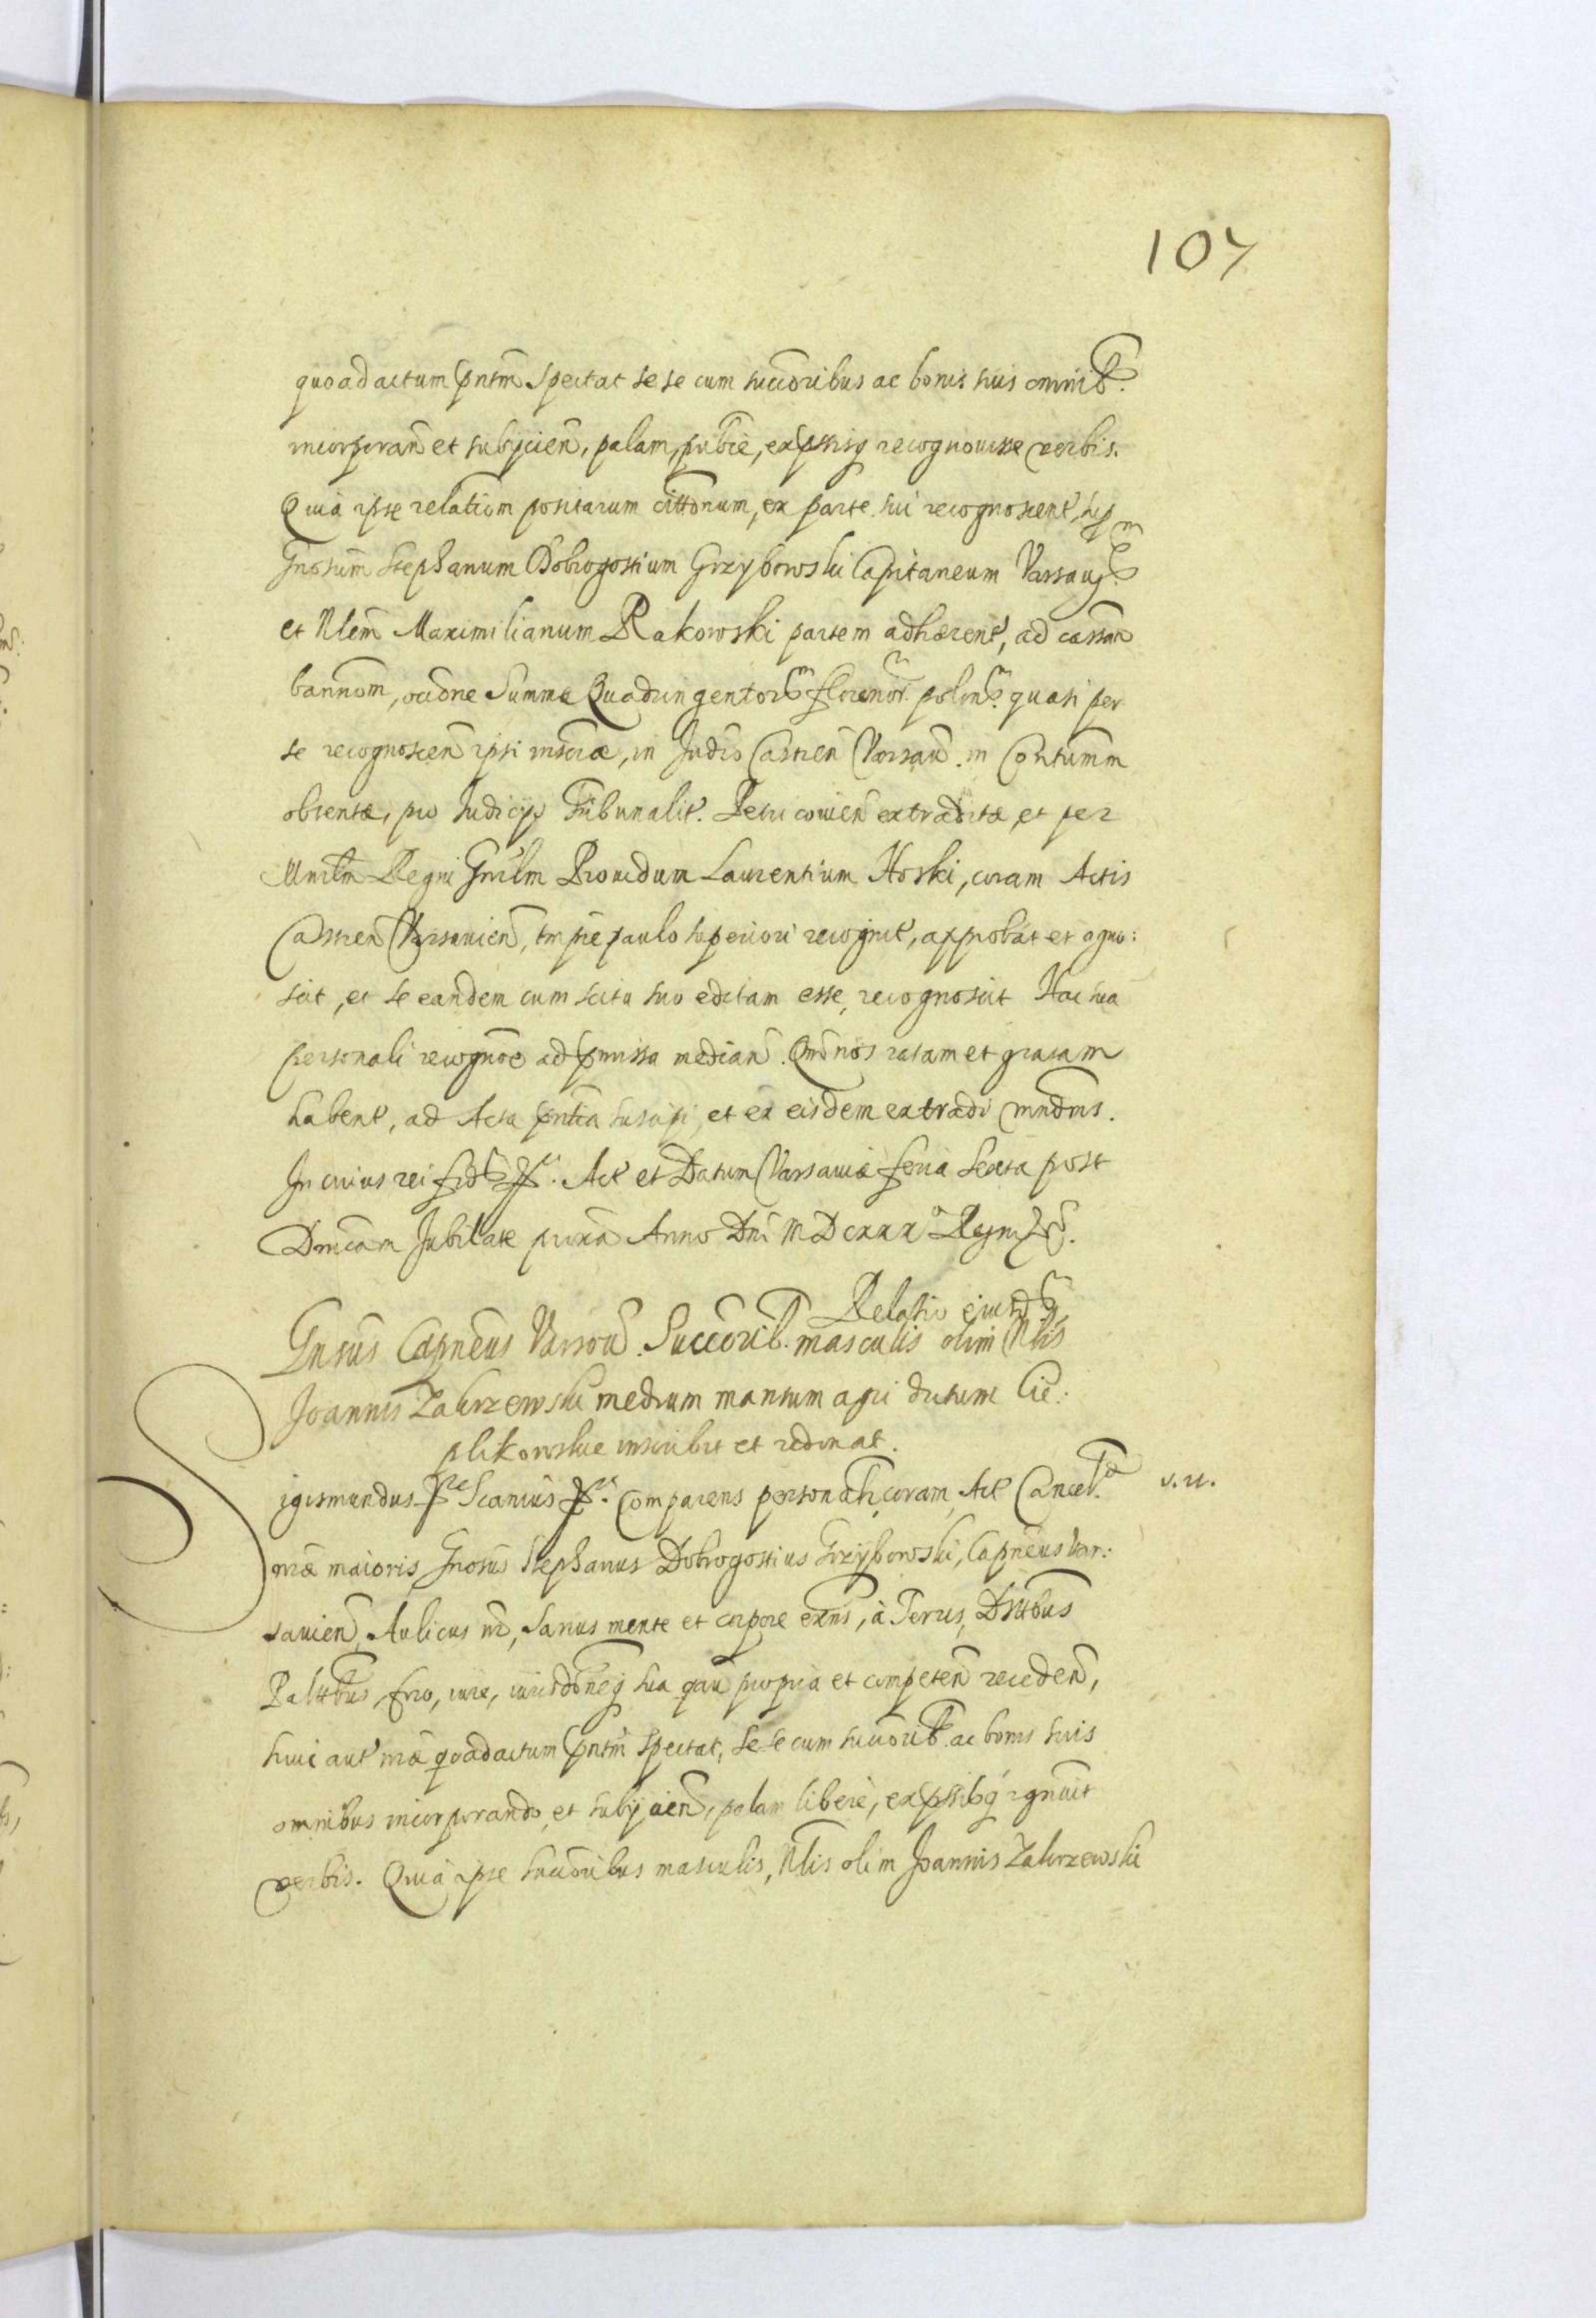 107
quoad actum pntm spectat se se cum succoribus ac bonis suis omnib.
incorporan et subijcien, palam, publce, expssisq recognouisse verbis.
Quia ipse relatiom positarum cittonum, ex parte sui recognoscent, sup
Gnosum Stephanum Dobrogostium Grzybowski Capitaneum Varsau
et Nlem Maximilianum Rakowski partem adhaerent, ad cassan
bannom, occone Summae Quadringentor florenor polon. quasi per
se recognoscen ipsi inscrae, in Judio Castren Varsau. in Contumm
obtentae, pro Judicijs Tribunalit. Petri couien extraditae et per
Mnrlm Regni Gnrlm Prouidum Laurentium Hoski, coram Actis
Castren Varsauien, tmpre paulo superiori recognit, approbat et agno:
scit, et se eandem cum scitu suo editam esse, recognoscit Hac sua
personali recognone ad pmissa median. Qm nos ratam et gratam
habent, ad Acta pntia suscipi, et ex eisdem extradi mndms.
In cuius rei fid. Act et Datum Varsauiae feria Sexta post
Dnicam Jubilate pxa Anno Dni MDCXXX Regni
Relatio eiusd
Gnsus Capneus Varsou. Succorib. masculis olim Nlis
Joannis Zakrzewski medium mansum agri dictum Cie:
plikowskie inscribit et redonat.
Sigismundus Scanius Comparens personalr coram Act Cancel. s. u.
nrae maioris Gnosus Stephanus Dobrogostius Grzybowski, Capneus Var:
sauien, Aulicus nr, Sanus mente et corpore exns, à Terris, Dsttbus
Palttbus, foro, iure, iurisdoneq sua qau propria et competen receden,
huic aut nrae quoad actum pntm spectat, se se cum succorib. ac bonis suis
omnibus incorporando, et subijcien, palam libere, expssibq rgnouit
verbis. Quia ipse succoribus masculis, Nlis olim Joannis Zakrzewski